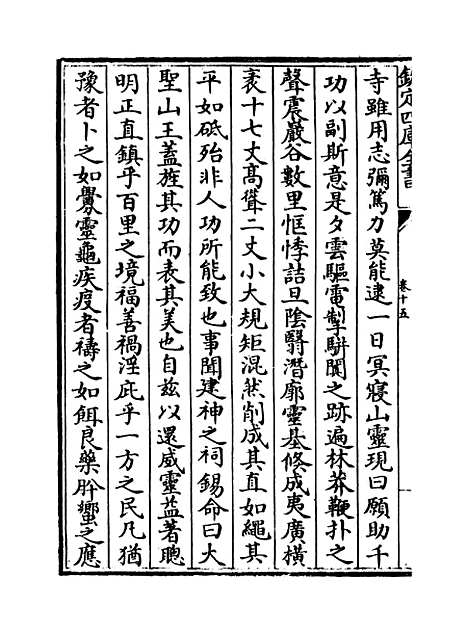 欽定四庫全書
卷十五
寺雖用志彌篤力莫能逮一日冥寢山靈現曰願助千
功以副斯意是夕雲驅電掣駢闐之跡遍林莽鞭扑之
聲震巖谷數里恇悸詰旦陰翳潛廓靈基倏成夷廣橫
袤十七丈高聳二丈小大規矩混然削成其直如繩其
平如砥殆非人功所能致也事聞建神之祠錫命曰大
聖山王蓋旌其功而表其美也自茲以還威靈益著聰
明正直鎮乎百里之境福善禍淫庇乎一方之民凡猶
豫者卜之如爨靈龜疾疫者禱之如餌良藥肸蠁之應